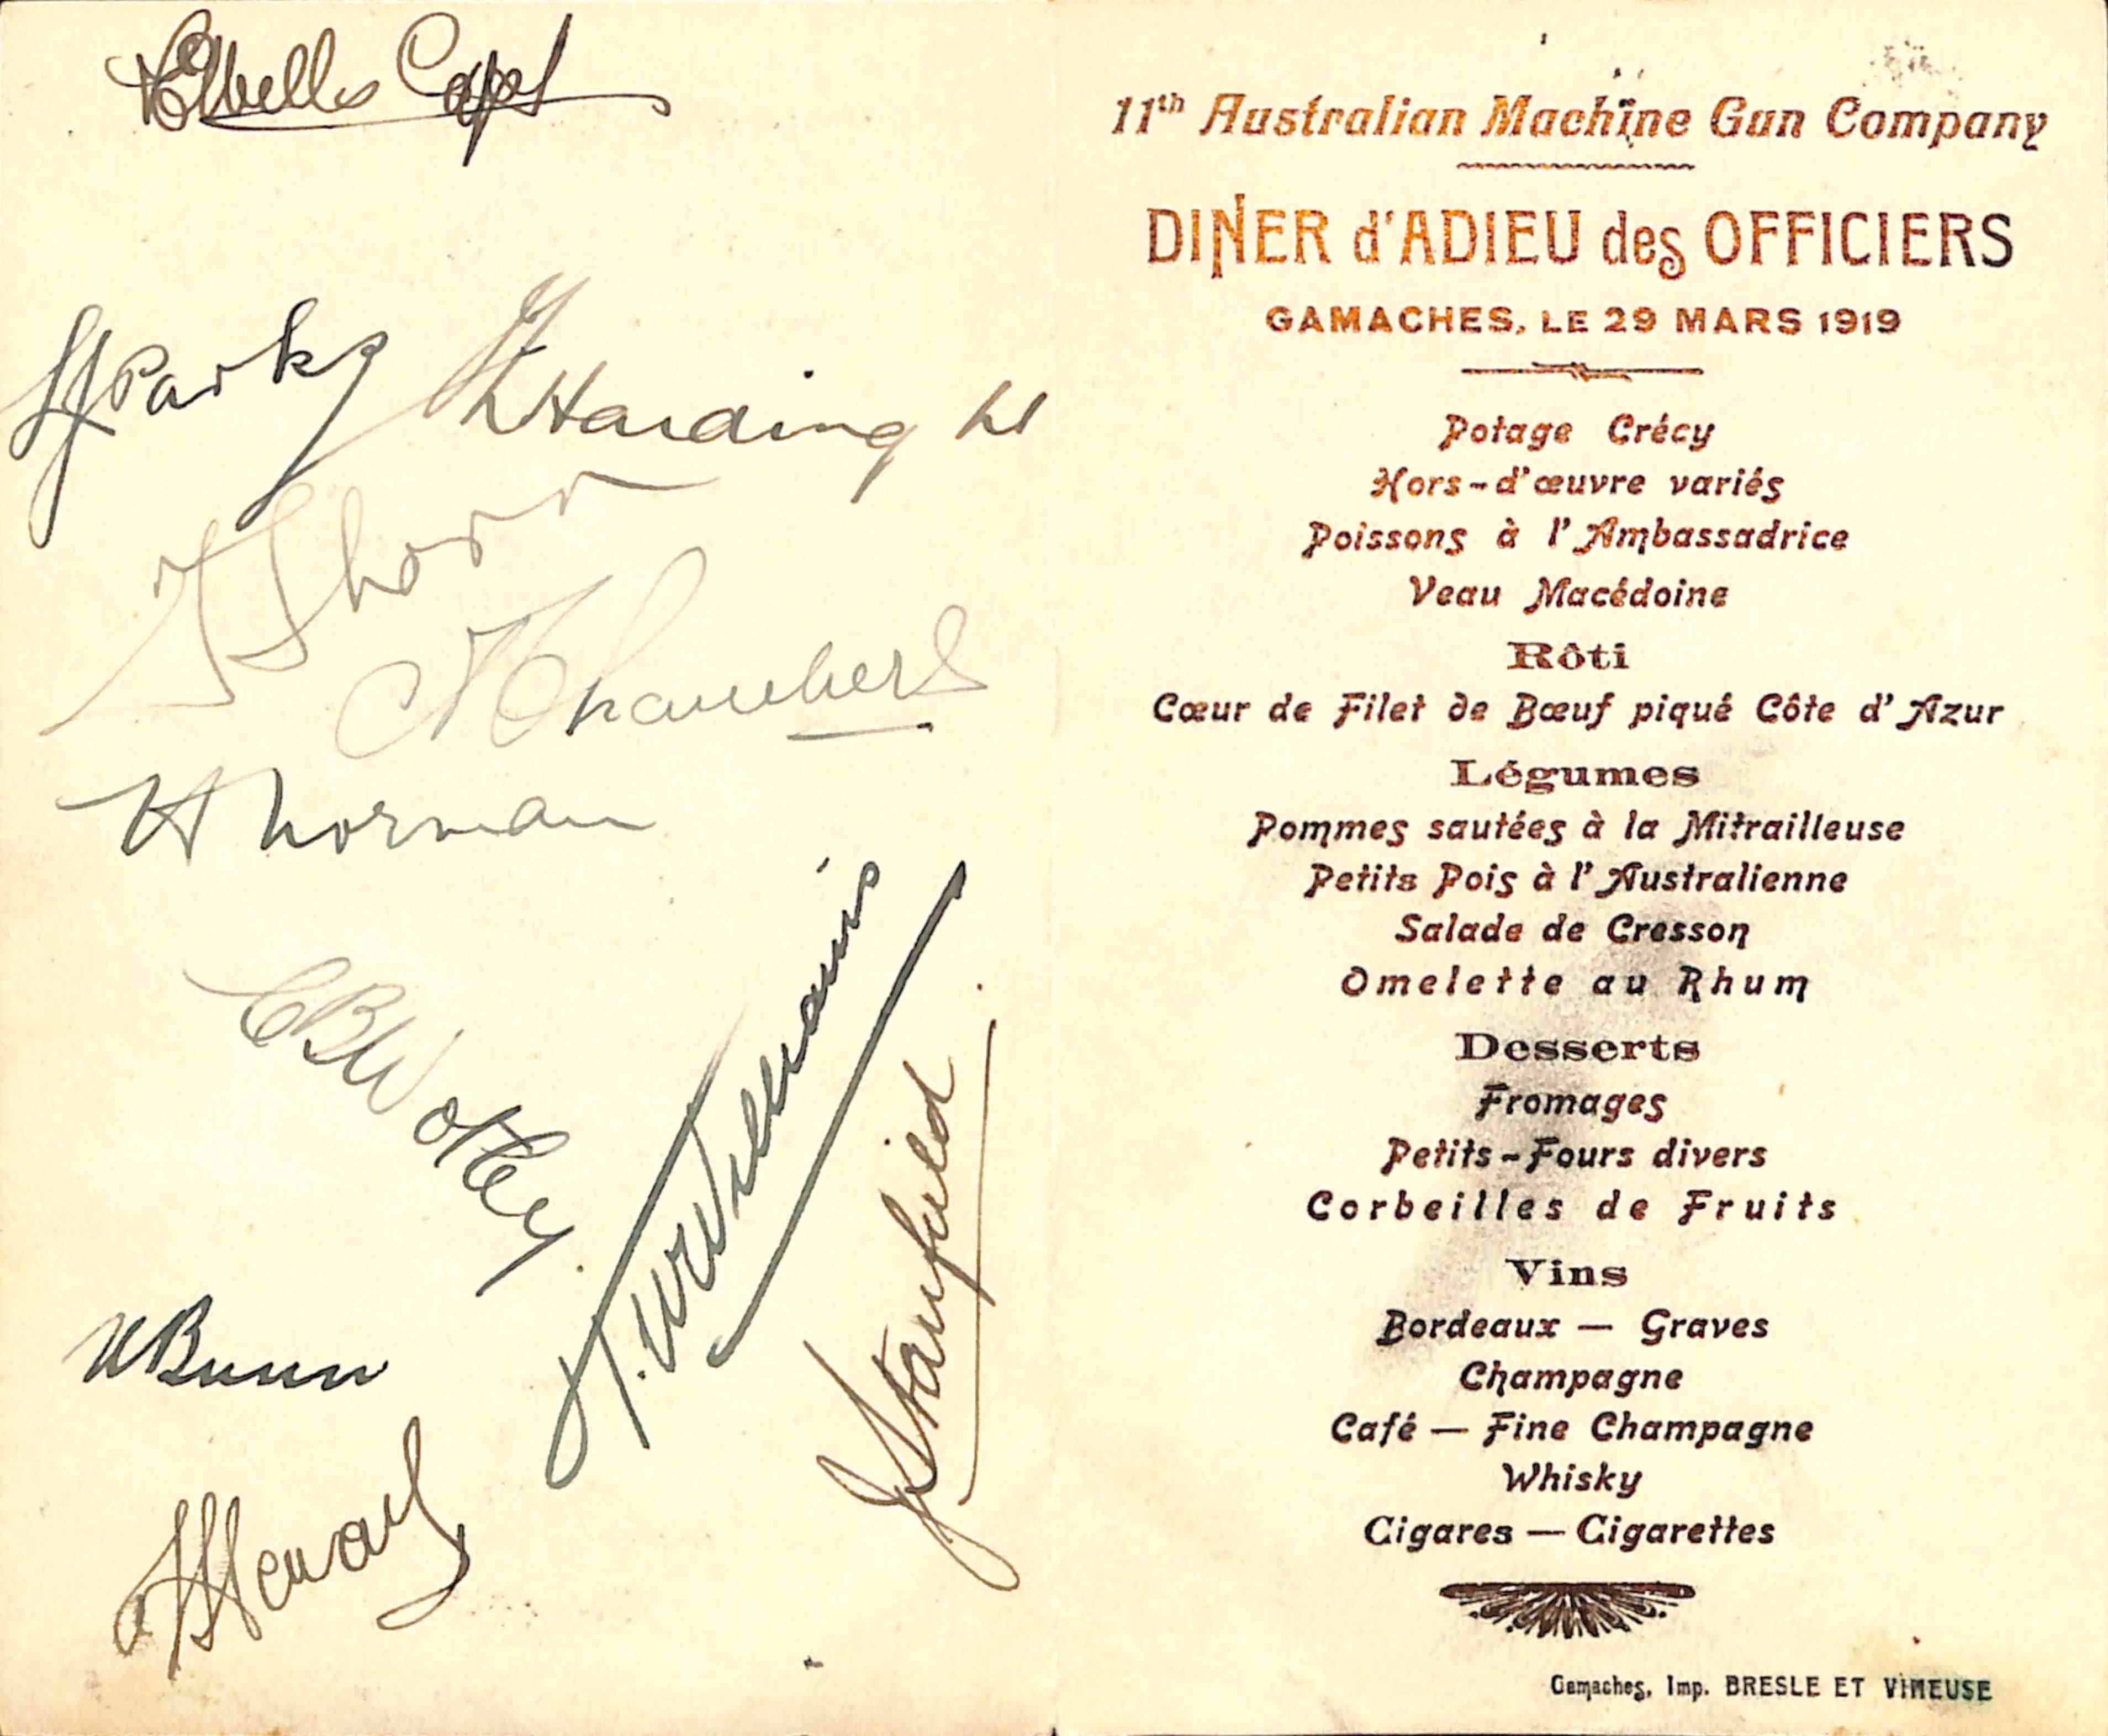 Wells Capt
Sparks
Harding Lt
Short
Chambers
Norman
CB Wolley
Williams
J Stanfield
W Bunn
11th Australian Machine Gun Company
DINER d'ADIEU des OFFICIERS
GAMACHES, LE 29 MARS 1919
Potage Crécy
Hors-d'œuvre variés
Poissons à l'Ambassadrice
Veau Macédoine
Rôti
Cœur de Filet de Bœuf piqué Côte d'Azur
Légumes
Pommes sautées à la Mitrailleuse
Petits Pois à l'Australienne
Salade de Cresson
Omelette au Rhum
Desserts
Fromages
Petits-Fours divers
Corbeilles de Fruits
Vins
Bordeaux — Graves
Champagne
Café — Fine Champagne
Whisky
Cigares — Cigarettes
Gamaches, Imp. BRESLE ET VIMEUSE